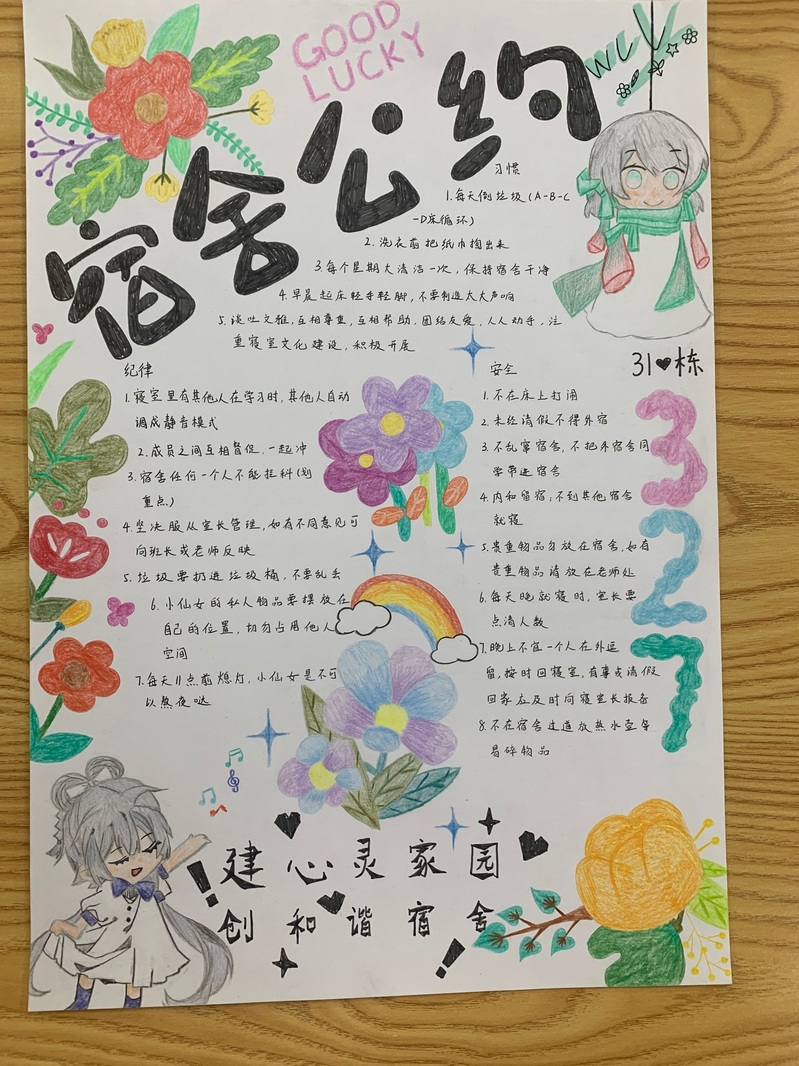 GOOD
LUCKY
宿舍公约
WLY
习惯
1.每天倒垃圾(A-B-C
-D床循环)
2.洗衣前把纸巾掏出来
3.每个星期大清洁一次，保持宿舍干净
4.早晨起床轻手轻脚，不要制造太大声响
5.谈吐文雅，互相尊重，互相帮助，团结友爱，人人动手，注
重寝室文化建设，积极开展
纪律
1.寝室里有其他人在学习时，其他人自动
调成静音模式
2.成员之间互相督促，一起冲
3.宿舍任何一个人不能挂科(划
重点)
4.坚决服从室长管理，如有不同意见可
向班长或老师反映
5.垃圾要扔进垃圾桶，不要乱丢
6.小仙女的私人物品要摆放在
自己的位置，切勿占用他人
空间
7.每天11点前熄灯，小仙女是不可
以熬夜哒
31栋
327
安全
1.不在床上打闹
2.未经请假不得外宿
3.不乱窜宿舍，不把外宿同
学带进宿舍
4.内和留宿；不到其他宿舍
就寝
5.贵重物品勿放在宿舍，如有
贵重物品请放在老师处
6.每天晚就寝时，室长要
点清人数
7.晚上不宜一个人在外逗
留，按时回寝室，有事或请假
回家应及时向寝室长报备
8.不在宿舍过道放热水壶等
易碎物品
建心灵家园
创和谐宿舍